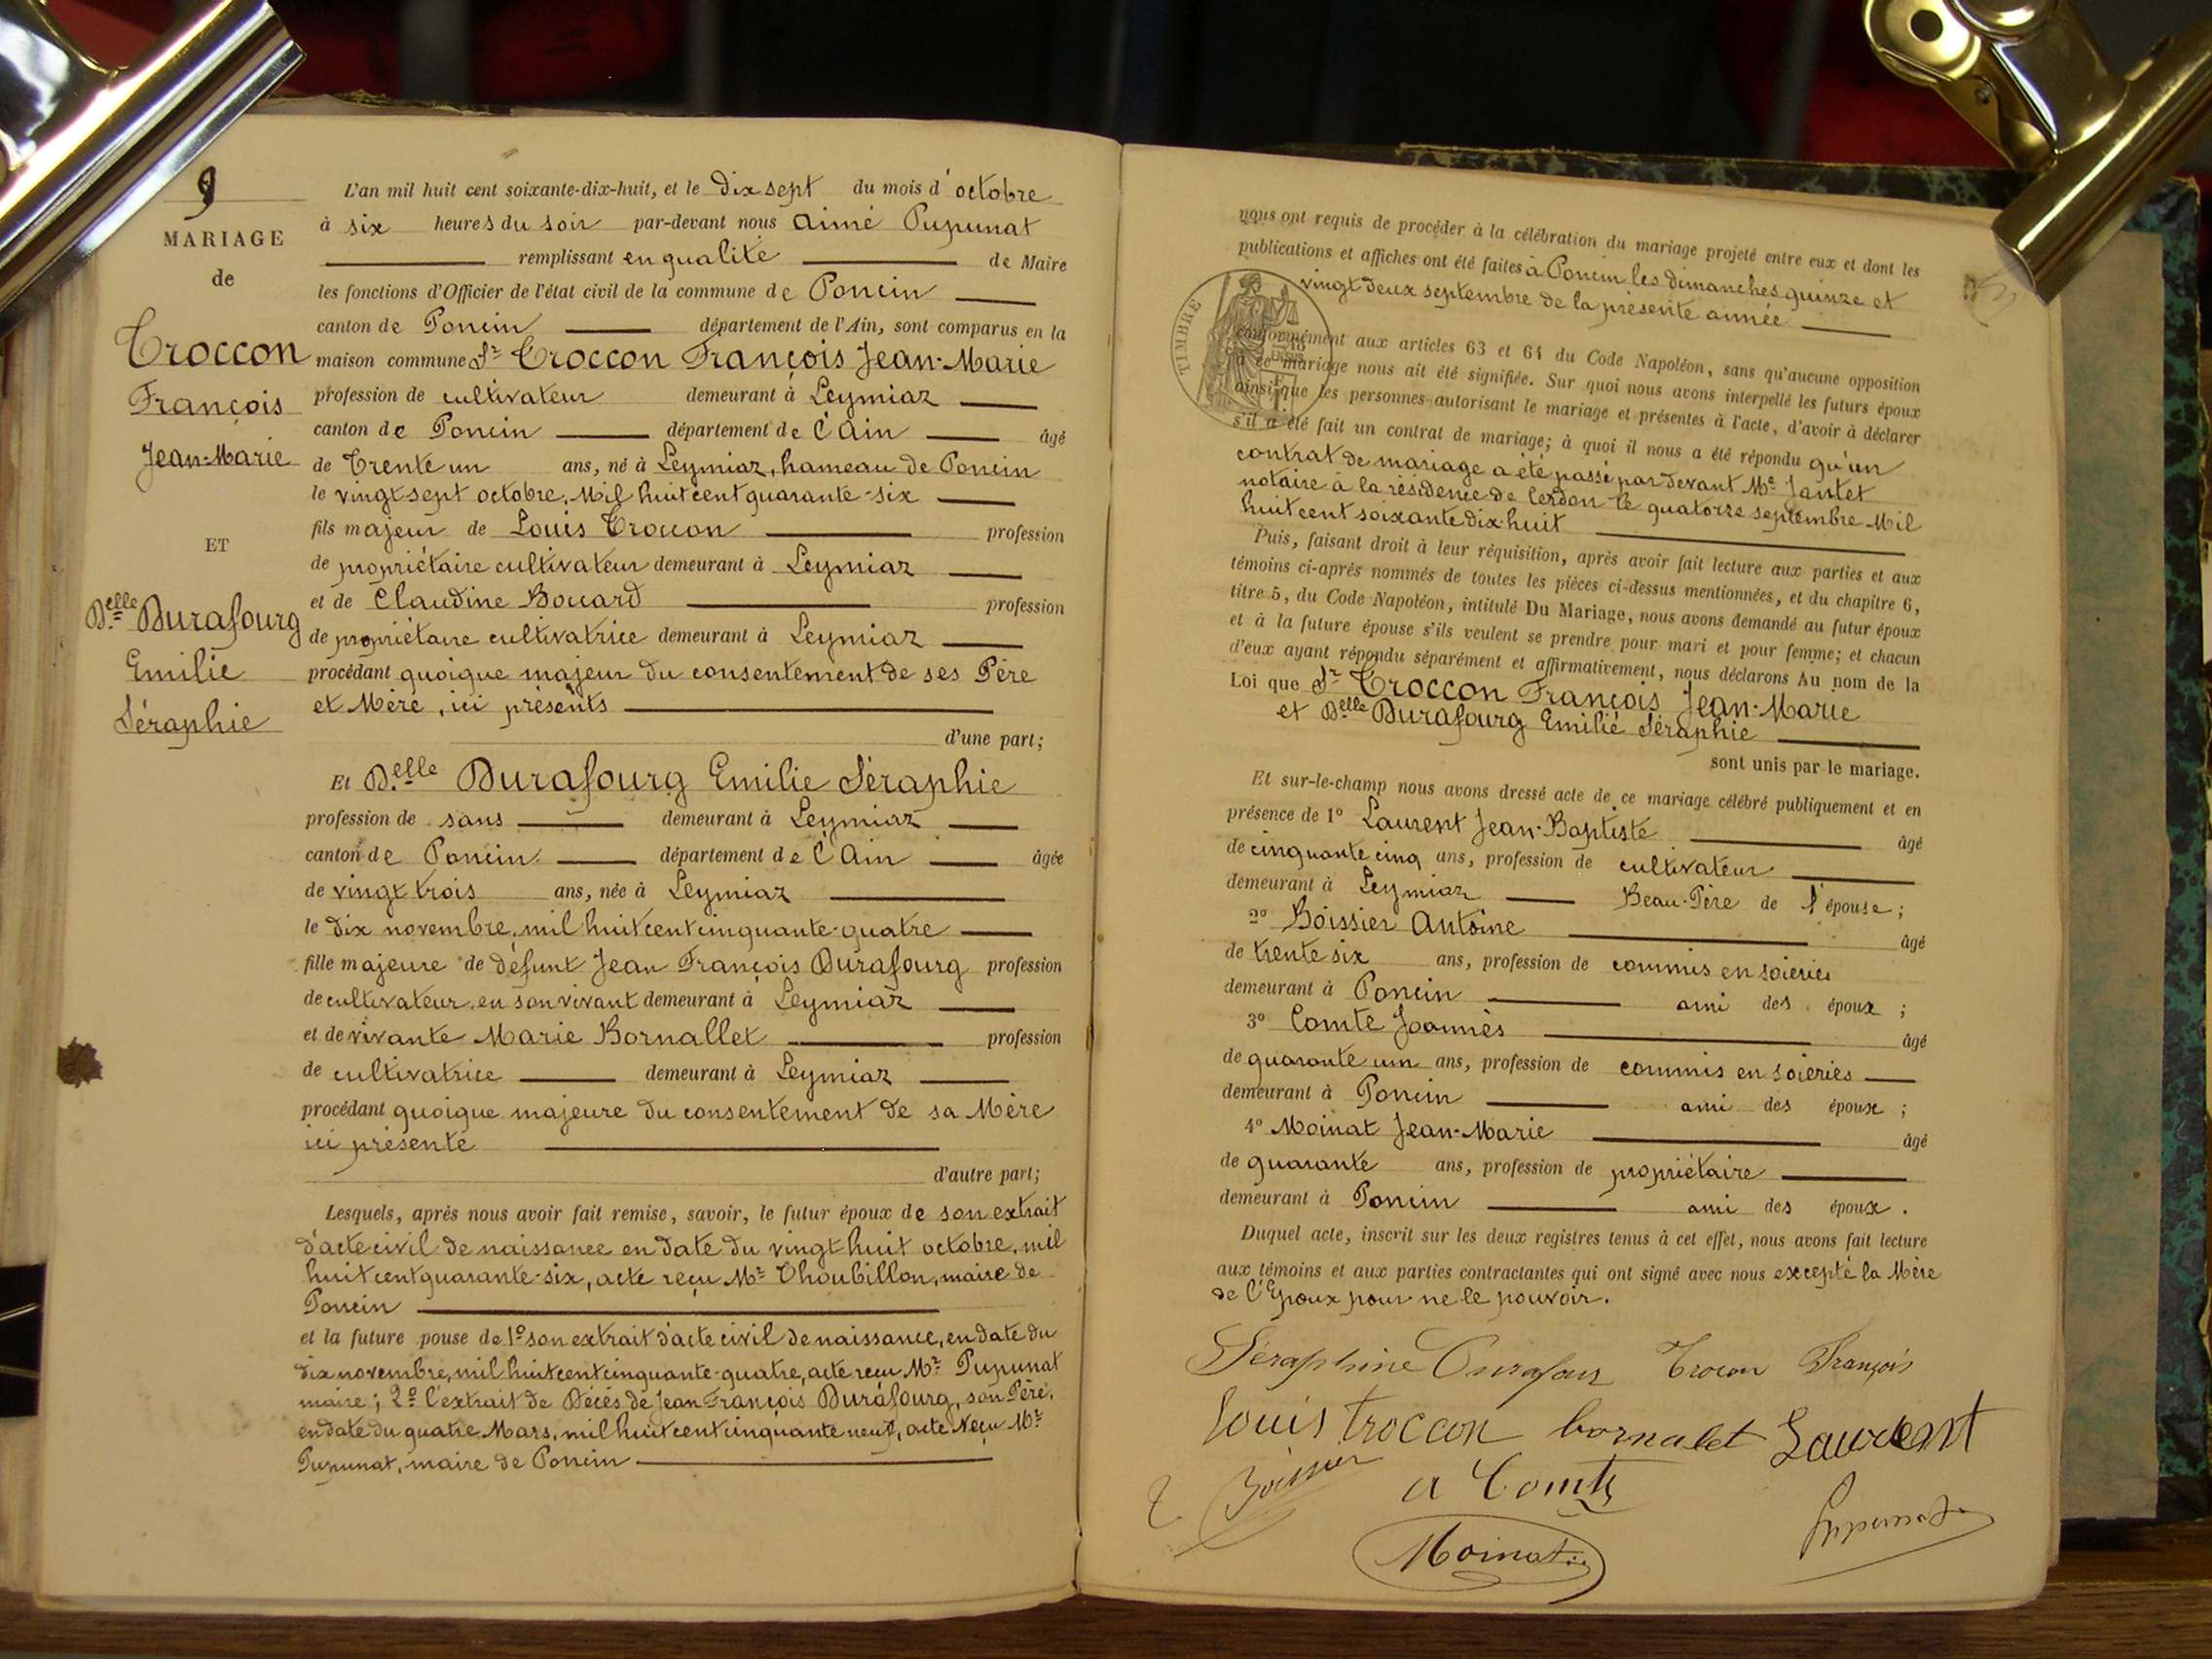 9
MARIAGE
de
Troccon
François
Jean-Marie
ET
Delle Durafourg
Emilie
Séraphie
L'an mil huit cent soixante-dix-huit, et le dix sept du mois d'octobre
à six heures du soir par-devant nous Aimé Pupunat
remplissant en qualité de Maire
les fonctions d'Officier de l'état civil de la commune de Poncin
canton de Poncin département de l'Ain, sont comparus en la
maison commune Sr Troccon François Jean-Marie
profession de cultivateur demeurant à Leymiaz
canton de Poncin département de l'Ain âgé
de trente un ans, né à Leymiaz, hameau de Poncin
le vingt-sept octobre, mil huit cent quarante-six
fils majeur de Louis Troccon profession
de propriétaire cultivateur demeurant à Leymiaz
et de Claudine Bouard profession
de propriétaire cultivatrice demeurant à Leymiaz
procédant quoique majeur du consentement de ses Père
et Mère, ici présents
d'une part;
Et Delle Durafourg Emilie Séraphie
profession de sans demeurant à Leymiaz
canton de Poncin département de l'Ain âgée
de vingt trois ans, née à Leymiaz
le dix novembre, mil huit cent cinquante-quatre
fille majeure de défunt Jean François Durafourg profession
de cultivateur, en son vivant demeurant à Leymiaz
et de vivante Marie Bornallet profession
de cultivatrice demeurant à Leymiaz
procédant quoique majeure du consentement de sa Mère
ici présente
d'autre part;
Lesquels, après nous avoir fait remise, savoir, le futur époux de son extrait
d'acte civil de naissance en date du vingt huit octobre, mil
huit cent quarante-six, acte reçu Mr Thoubillon, maire de
Poncin
et la future pouse de 1o son extrait d'acte civil de naissance, en date du
dix novembre, mil huit cent cinquante-quatre, acte reçu Mr Pupunat
maire; 2o l'extrait de Décès de Jean François Durafourg, son Père,
en date du quatre Mars, mil huit cent cinquante neuf, acte reçu Mr
Pupunat, maire de Poncin
nous ont requis de procéder à la célébration du mariage projeté entre eux et dont les
publications et affiches ont été faites à Poncin les dimanches quinze et
vingt deux septembre de la présente année
TIMBRE
conformément aux articles 63 et 64 du Code Napoléon, sans qu'aucune opposition
à ce mariage nous ait été signifiée. Sur quoi nous avons interpellé les futurs époux
ainsi que les personnes autorisant le mariage et présentes à l'acte, d'avoir à déclarer
s'il a été fait un contrat de mariage; à quoi il nous a été répondu qu'un
contrat de mariage a été passé par devant Me Jantet
notaire à la résidence de Cerdon le quatorze septembre Mil
huit cent soixante dix-huit
Puis, faisant droit à leur réquisition, après avoir fait lecture aux parties et aux
témoins ci-après nommés de toutes les pièces ci-dessus mentionnées, et du chapitre 6,
titre 5, du Code Napoléon, intitulé Du Mariage, nous avons demandé au futur époux
et à la future épouse s'ils veulent se prendre pour mari et pour femme; et chacun
d'eux ayant répondu séparément et affirmativement, nous déclarons Au nom de la
Loi que Sr Troccon François Jean-Marie
et Delle Durafourg Emilie Séraphie
sont unis par le mariage.
Et sur-le-champ nous avons dressé acte de ce mariage célébré publiquement et en
présence de 1o Laurent Jean-Baptiste âgé
de cinquante cinq ans, profession de cultivateur
demeurant à Leymiaz Beau-Père de l'épouse;
2o Boissier Antoine âgé
de trente six ans, profession de commis en soieries
demeurant à Poncin ami des époux;
3o Comte Joannès âgé
de quarante un ans, profession de commis en soieries
demeurant à Poncin ami des époux;
4o Moinat Jean-Marie âgé
de quarante ans, profession de propriétaire
demeurant à Poncin ami des époux.
Duquel acte, inscrit sur les deux registres tenus à cet effet, nous avons fait lecture
aux témoins et aux parties contractantes qui ont signé avec nous excepté la Mère
de l'Epoux pour ne le pouvoir.
Séraphine Durafour Trocon François
Louis troccon bornalet Laurent
Boissier a Comte
Moinat Pupunat